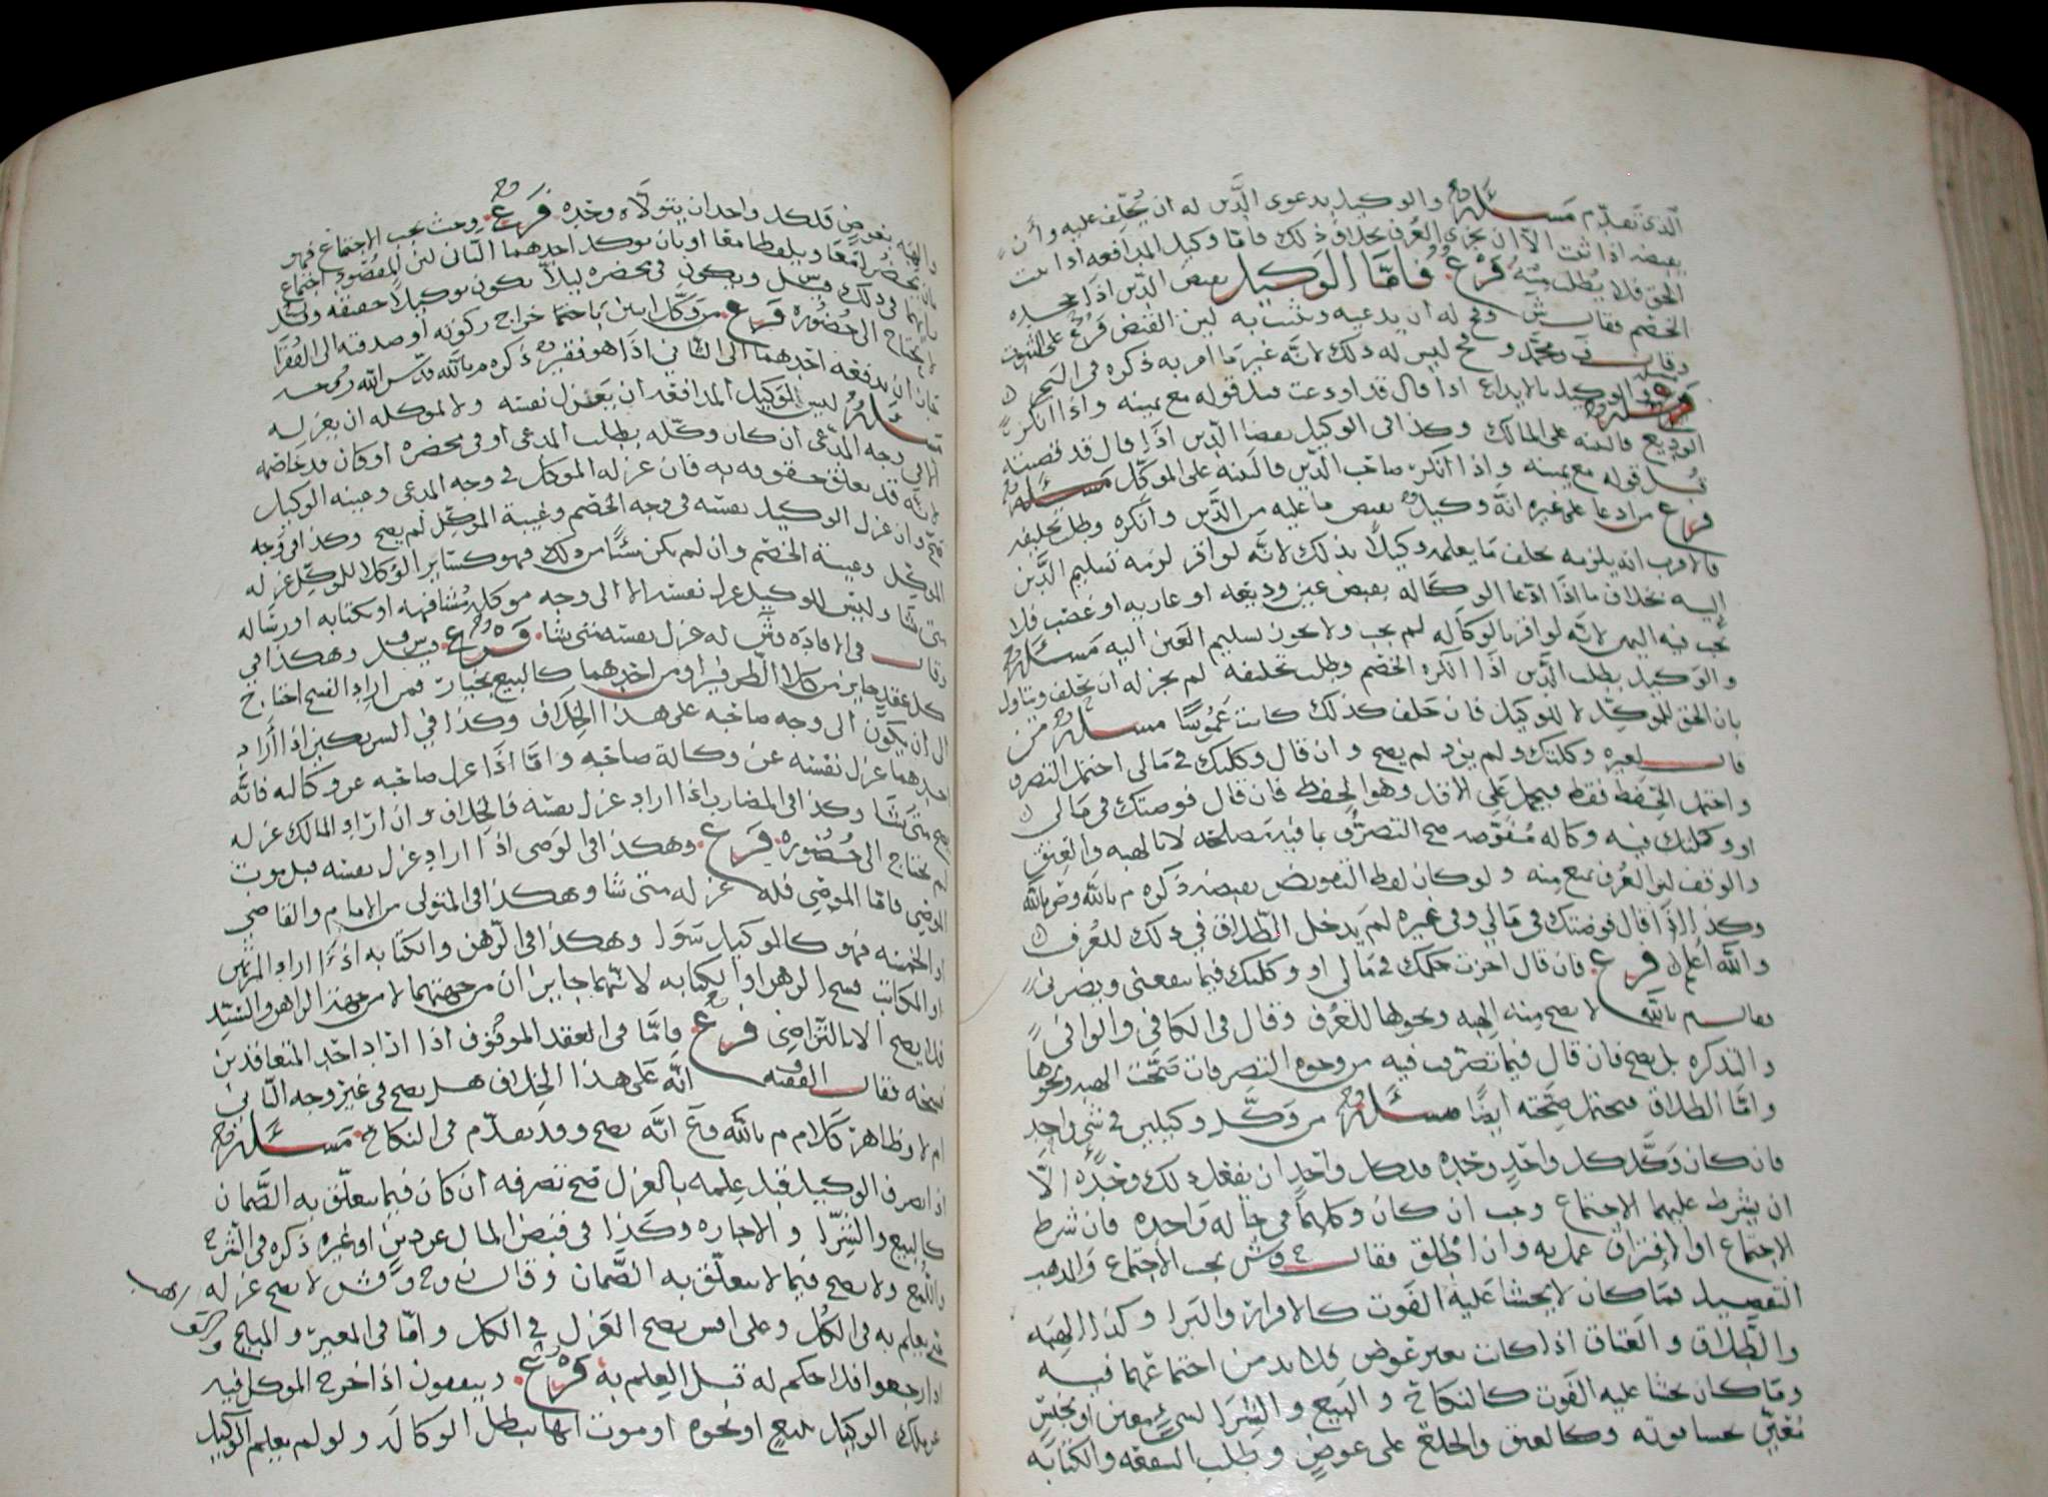 الذي تقدم مسئلة والوكيل بدعوى الدين له ان يحلف عليه وأن
يقبضه اذا ثبت الا ان يجري العرف بخلاف ذلك فامّا وكيل المدافعه اذا ثبت
الحق فلا يطلب منه فرع فامّا الوكيل بقبض الدين اذا جحده
الخصم فقال ش وح له ان يدعيه ويثبت به لان القبض فرع على الثبوت
وقال ف ومحمد وح ليس له ذلك لانه غير ما امر به ذكره في البحر
فرع الوكيل بالايداع اذا قال قد اودعت قبل قوله مع يمينه واذا انكر
الوديع فالبينه على المالك وكذا في الوكيل بقضا الدين اذا قال قد قضيته
قبل قوله مع يمينه واذا انكر صاحب الدين فالبينه على الموكّل مسئلة
فرع من ادعا على غيره انه وكيل بقبض ما عليه من الدين وانكره وطلب تحليفه
فالاقرب انه يلزمه يحلف ما يعلمه وكيلا بذلك لانه لو اقر لزمه تسليم الدين
اليه بخلاف ما اذا ادعا الوكاله بقبض عين وديعه او عاريه او غصب فلا
يجب فيه اليمين لانه لو اقر بالوكاله لم يجب ولا يجوز تسليم العين اليه مسئلة
والوكيل بطلب الدين اذا انكره الخصم وطلب تحليفه لم يجز له ان يحلف ويتاول
بان الحق للموكّل لا للوكيل فان حلف كذلك كانت غموسًا مسئلة من
قال لغيره وكلتك ولم يزد لم يصح وان قال وكلتك في مالي احتمل التصرف
واحتمل الحفظ فقط فيحمل على الاقل وهو الحفظ فان قال فوضتك في مالي
او وكلتك فيه وكاله مفوّضه صح التصرف بما فيه مصلحه لا بالهبه والعتق
والوقف لان العرف يمنع منه ولو كان لفظ التفويض يقتضيه ذكره م بالله وض بالله
وكذا اذا قال فوضتك في مالي وفي غيره لم يدخل الطلاق في ذلك للعرف
والله اعلم فرع فان قال اجزت حكمك في مالي او وكلتك فيما ينفعني ويضرني
فقال م بالله لا يصح منه الهبه ونحوها للعرف وقال في الكافي والوافي
والتذكره بل يصح فان قال فيما تصرفت فيه من وجوه التصرفات صحت الهبه ونحوها
وامّا الطلاق فيحتمل صحته ايضًا مسئلة من وكّل وكيلين في شي واحد
فان كان وكّل كل واحدٍ وحده فلكل واحدٍ ان يفعل ذلك وحده الّا
ان يشرط عليهما الاجتماع وجب ان كان وكلهما في حاله واحده فان شرط
الاجتماع او الافتراق عمل به وان اطلق فقال ح وش يجب الاجتماع والمذهب
التفصيل فما كان لا يخشا عليه الفوت كالاقرار والبرا وكذا الهبه
والطلاق والعتاق اذا كانت بغير عوض فلا بد من اجتماعهما فيه
وما كان يخشا عليه الفوت كالنكاح والبيع والشرا لشيءٍ معين او بجنسٍ
معيّن يخشا فوته وكالعتق والخلع على عوضٍ وطلب الشفعه والكتابه
والهبه بعوض فلكل واحد ان يتولاه وحده فرع وحيث يجب الاجتماع فهو
بان يحضرا معًا ويلفظا معا او بان يوكل احدهما الثاني لان المقصود اجتماع
رأيهما وذلك ويكون في محضره ليلا يكون توكيلا حقيقه
لا يحتاج الى حضوره فرع من وكّل اثنين باخراج زكوته او صدقته الى الفقرا
جاز ان يدفعه احدهما الى الثاني اذا هو فقير ذكره م بالله قدس الله روحه
مسئلة ليس للوكيل المدافعه ان يعزل نفسه ولا لموكله ان يعزله
الا في وجه المدعي ان كان وكّله بطلب المدعي او في محضره او كان قد خاصمه
لانه قد تعلق حقوقه به فان عزله الموكل في وجه المدعي وغيبة الوكيل
صح وان عزل الوكيل نفسه في وجه الخصم وغيبة الموكّل لم يصح وكذا في وجه
الموكّل وغيبة الخصم وان لم يكن شيئًا من ذلك فهو كساير الوكلا للموكّل عزله
متى شا وليس للوكيل عزل نفسه الا الى وجه موكله مشافهه او كتابه او رساله
وقال في الافاده وش له عزل نفسه متى شا فرع وهكذا في
كل عقدٍ جايز من كلا الطرفين او من احدهما كالبيع بخيار فمن اراد الفسخ احتاج
الى ان يكون الى وجه صاحبه على هذا الخلاف وكذا في الشريكين اذا أراد
احدهما عزل نفسه عن وكالة صاحبه وامّا اذا عزل صاحبه عن وكالته فانّه
يصح متى شا وكذا في المضارب اذا اراد عزل نفسه فالخلاف وان اراد المالك عزله
لم يحتاج الى حضوره فرع وهكذا في الوصي اذا اراد عزل نفسه قبل موت
الموصي فاما الموصي فله عزله متى شا وهكذا في المتولي من الامام والقاضي
او الخمسه فهو كالموكيل سوا وهكذا في الرهن والكتابه اذا اراد المرتهن
او المكاتب فسخ الرهن او الكتابه لانهما جايزان من جهتهما لا من جهة الراهن والسيد
فلا يصح الا بالتراضي فرع فامّا في العقد الموقوف اذا اراد احد المتعاقدين
فسخه فقال الفقيه انه على هذا الخلاف هل يصح في غير وجه الثاني
ام لا وظاهر كلام م بالله وع انه يصح وقد تقدّم في النكاح مسئلة
اذا تصرف الوكيل قبل علمه بالعزل صح تصرفه ان كان فيما يتعلّق به الضّمان
كالبيع والشرا والاجاره وكذا في قبض المال عن دينٍ او غيره ذكره في الشرح
واللمع ولا يصح فيما لا يتعلّق به الضّمان وقال ن وح وش لا يصح عزله
حتى يعلم به في الكل وعلى يصح العزل في الكل وامّا في المعير والمبيح
اذا رجعوا فلا حكم له قبل العلم به فرع ويتفقون اذا اخرج الموكل فيه
عن ملك الوكيل ببيعٍ او نحوه او موت انها تبطل الوكالة ولو لم يعلم الوكيل